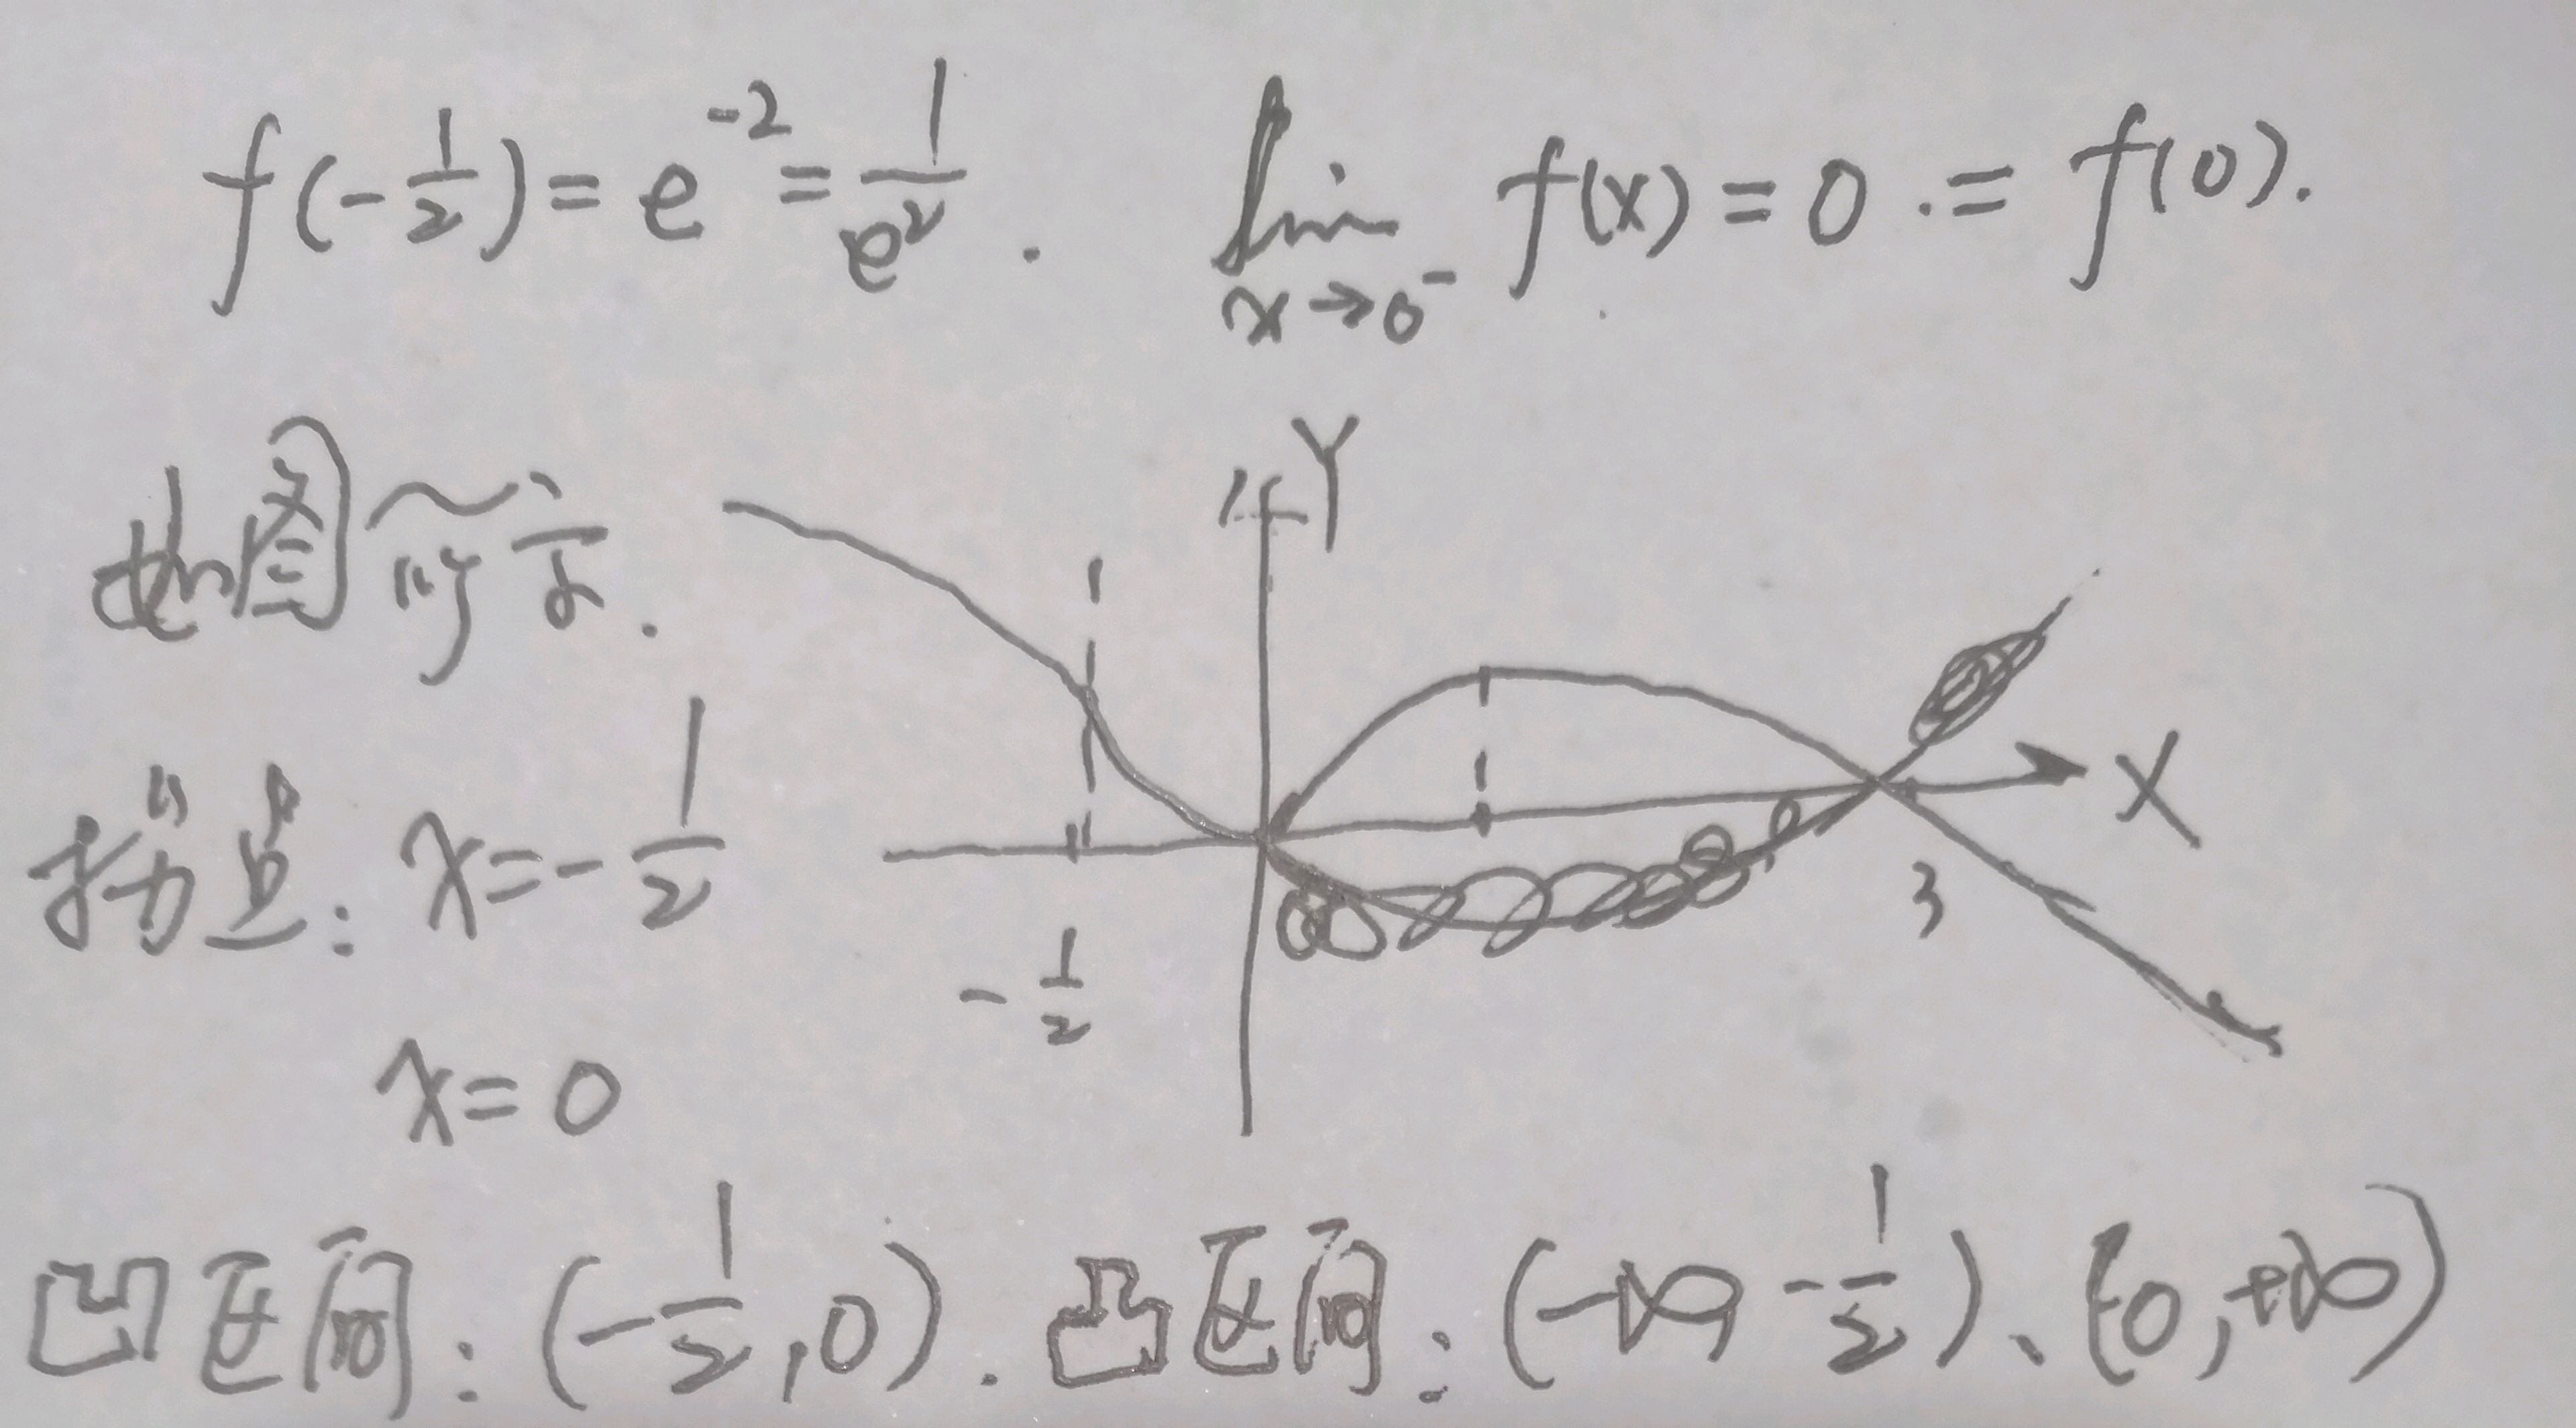 f(-1/2) = e^{-2} = 1/e^2 . lim_{x→0^-} f(x) = 0 . = f(0).
如图所示.
Y
X
3
-1/2
拐点: x = -1/2
x = 0
凹区间: (-1/2, 0) . 凸区间: (-∞, -1/2)、(0, +∞)